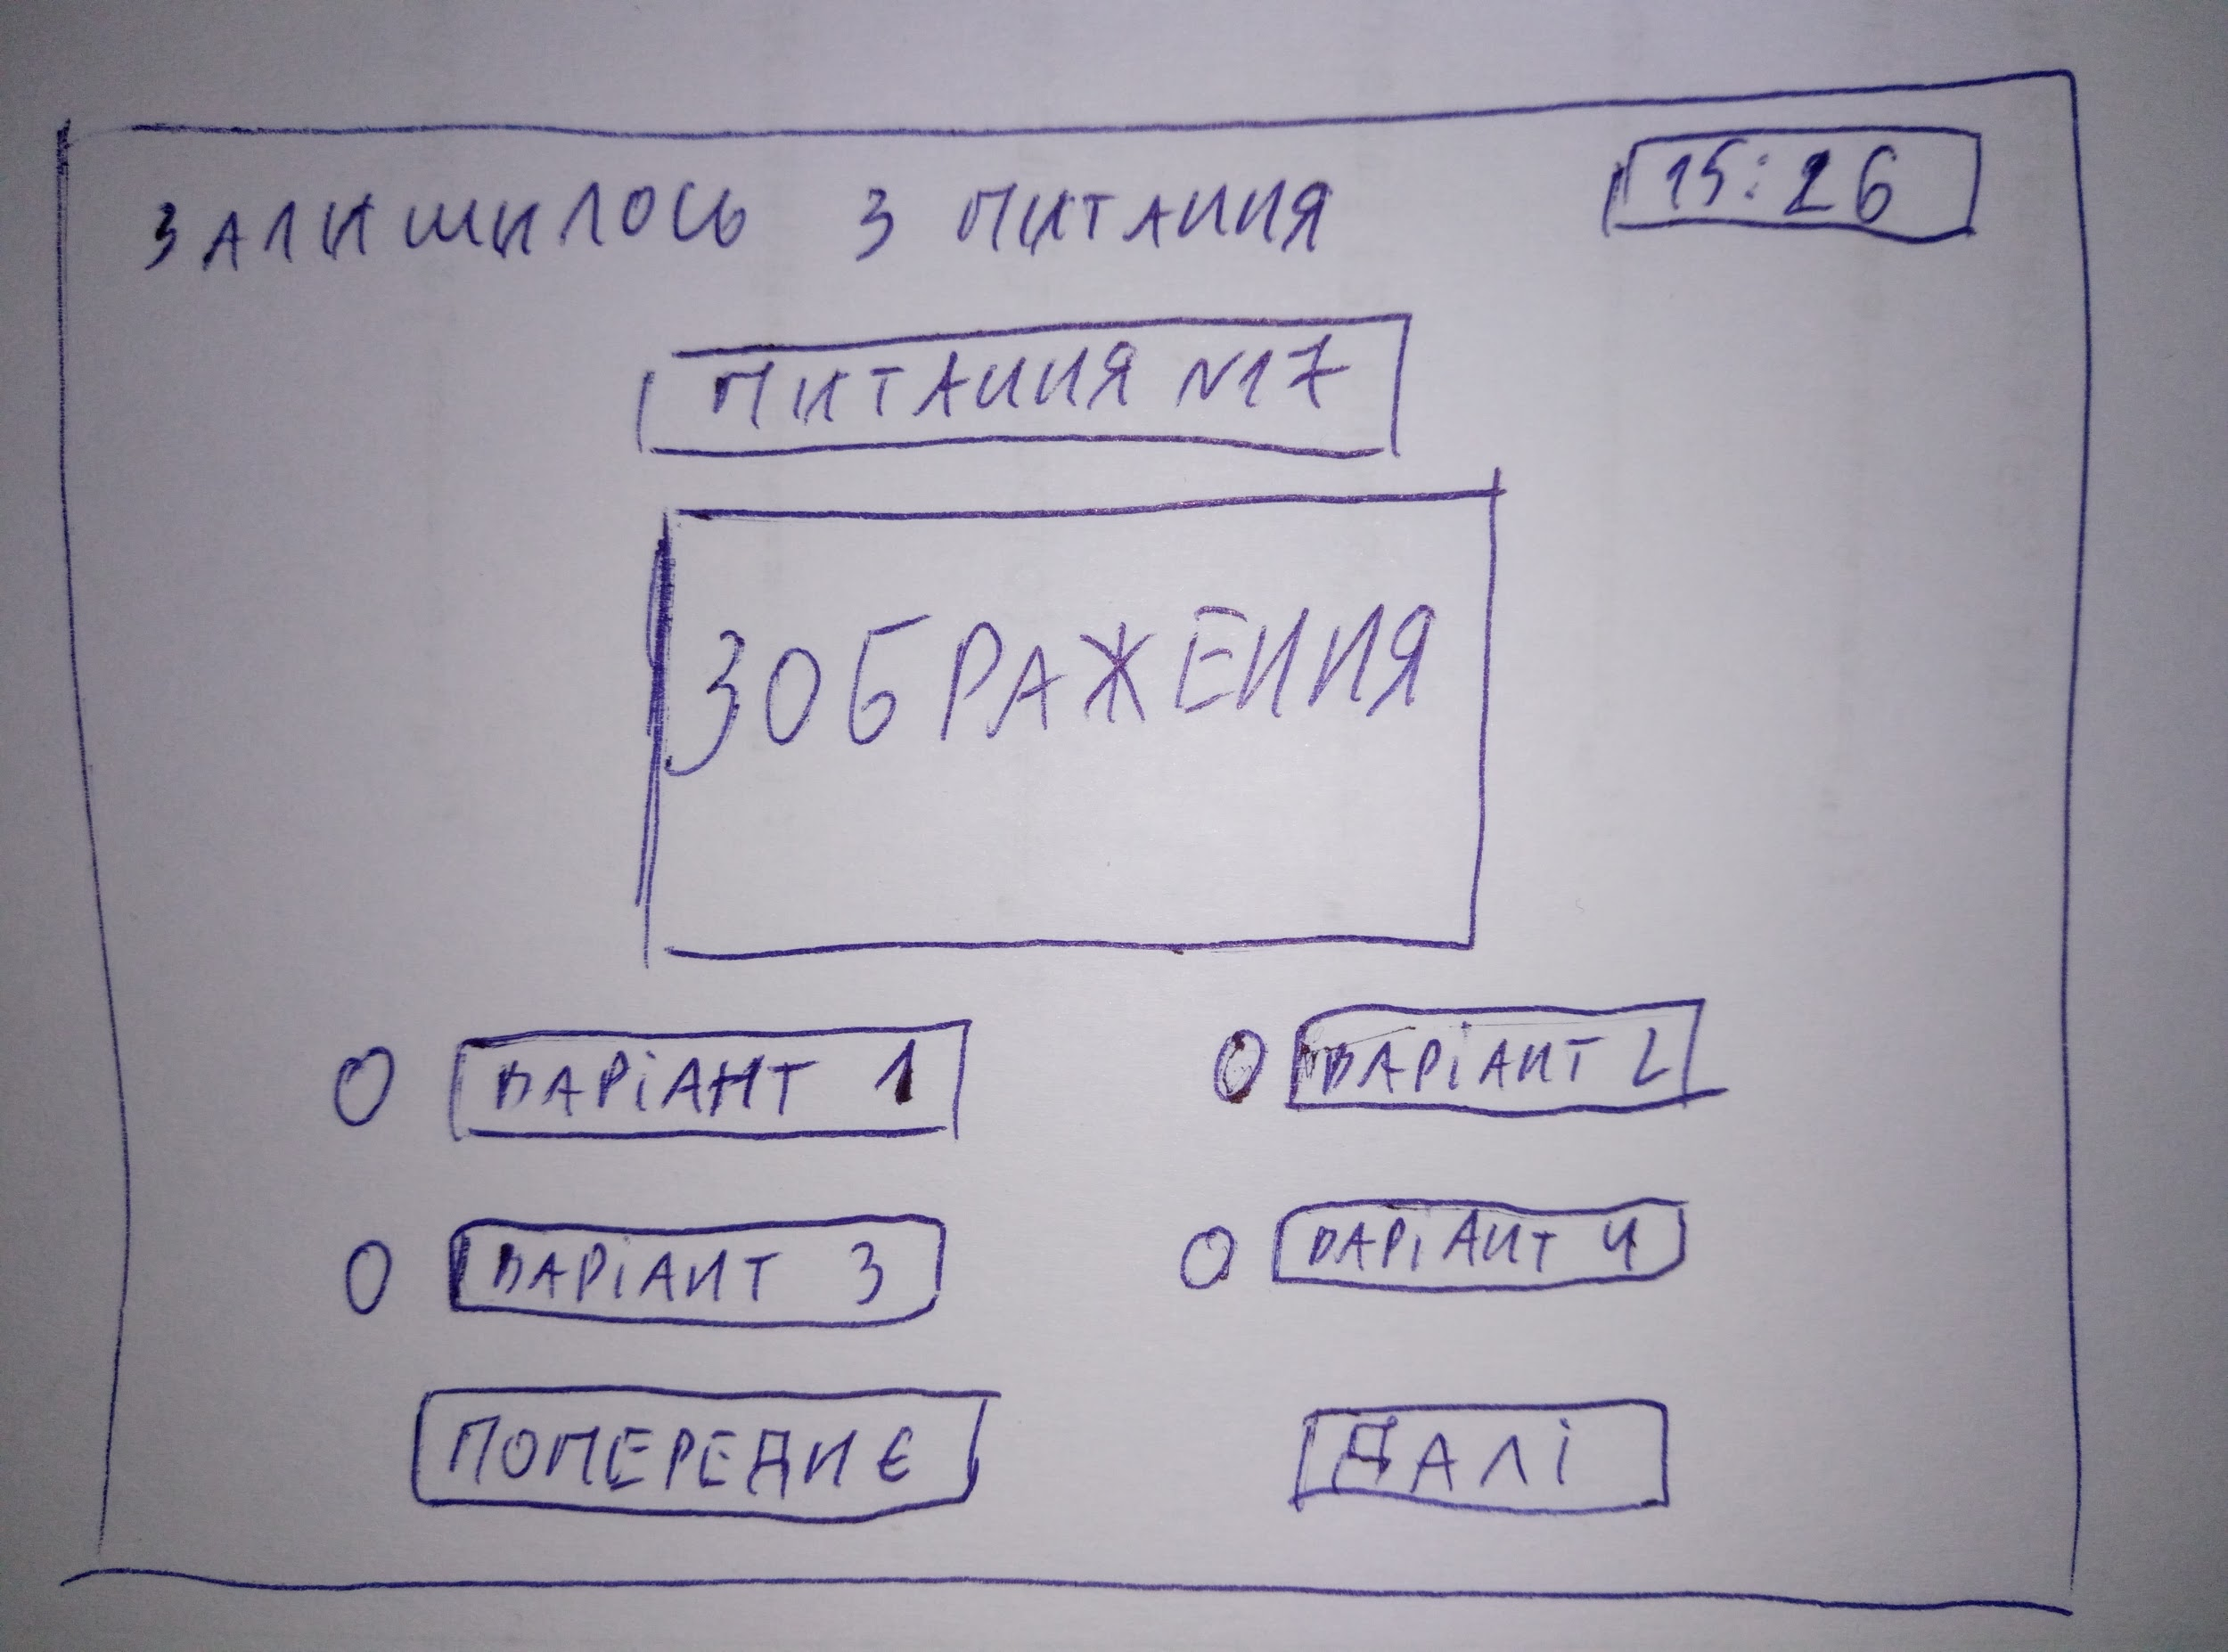 ЗАЛИШИЛОСЬ 3 ПИТАННЯ
15:26
ПИТАННЯ №17
ЗОБРАЖЕННЯ
ВАРІАНТ 1
ВАРІАНТ 2
ВАРІАНТ 3
ВАРІАНТ 4
ПОПЕРЕДНЄ
ДАЛІ